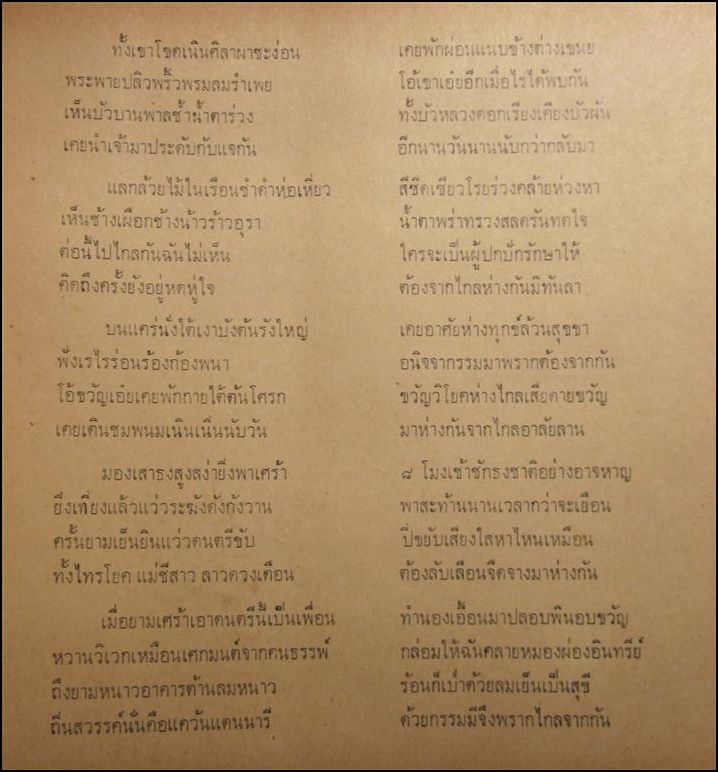 ทั้งเขาโขดเนินศิลาผาชะง่อน เคยพักผ่อนแนบข้างต่างเขนย
พระพายปลิวพริ้วพรมลมรำเพย โอ้เขาเอ๋ยอีกเมื่อไรได้พบกัน
เห็นบัวบานพาลช้ำน้ำตาร่วง ทั้งบัวหลวงดอกเรียงเคียงบัวผัน
เคยนำเจ้ามาประดับกับแจกัน อีกนานวันนานนับกว่ากลับมา
แลกล้วยไม้ในเรือนชำดำห่อเหี่ยว สีซีดเซียวโรยร่วงคล้ายห่วงหา
เห็นช้างเผือกช้างน้าวร้าวอุรา น้ำตาพร่าทรวงสลดรันทดใจ
ต่อนี้ไปไกลกันฉันไม่เห็น ใครจะเป็นผู้ปกปักรักษาให้
คิดถึงครั้งยังอยู่หดหู่ใจ ต้องจากไกลห่างกันมิทันลา
บนแคร่นั่งใต้เงาบังต้นรังใหญ่ เคยอาศัยห่างทุกข์ล้วนสุขขา
ฟังเรไรร่อนร้องก้องพนา อนิจจากรรมมาพรากต้องจากกัน
โอ้ขวัญเอ๋ยเคยพักกายใต้ต้นโศรก ขวัญวิโยคห่างไกลเสียดายขวัญ
เคยเดินชมพนมเนินเนิ่นนับวัน มาห่างกันจากไกลอาลัยลาน
มองเสาธงสูงสง่ายิ่งพาเศร้า ๘ โมงเช้าชักธงชาติอย่างอาจหาญ
ยิ่งเที่ยงแล้วแว่วระฆังดังกังวาน พาสะท้านนานเวลากว่าจะเยือน
ครั้นยามเย็นยินแว่วดนตรีขับ ปี่ขยับเสียงใสหาไหนเหมือน
ทั้งไทรโยค แม่ชีสาว ลาวดวงเดือน ต้องลับเลือนจืดจางมาห่างกัน
เมื่อยามเศร้าเอาดนตรีนี้เป็นเพื่อน ทำนองเอื้อนมาปลอบพินอบขวัญ
หวานวิเวกเหมือนเศกมนต์จากคนธรรพ์ กล่อมให้ฉันคลายหมองผ่องอินทรีย์
ถึงยามหนาวอาคารต้านลมหนาว ร้อนก็เป่าด้วยลมเย็นเป็นสุขี
ถิ่นสวรรค์นั่นคือแดวันแดนนารี ด้วยกรรมมีจึงพรากไกลจากกัน